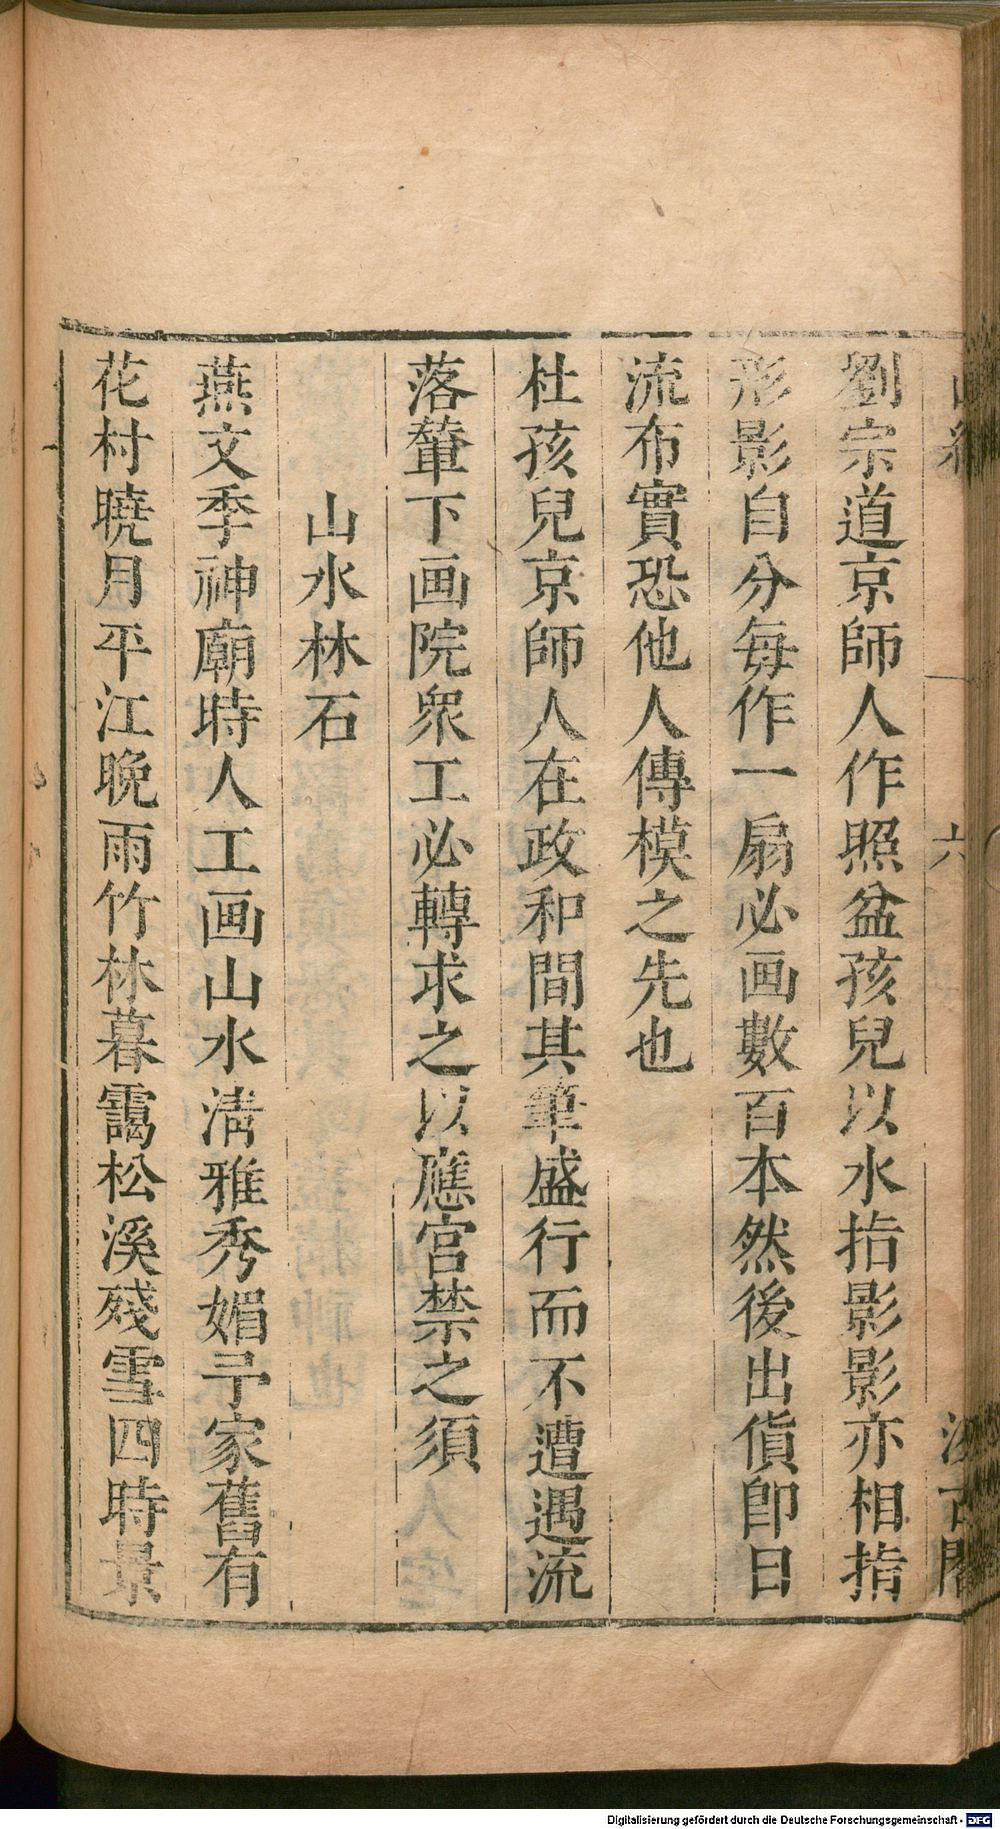 劉宗道京師人作照盆孩兒以水指影影亦相指
形影自分每作一扇必画數百本然後出貨即日
流布實恐他人傳模之先也
杜孩兒京師人在政和間其筆盛行而不遭遇流
落輦下画院衆工必轉求之以應宮禁之須
山水林石
燕文季神廟時人工画山水清雅秀媚予家舊有
花村曉月平江晚雨竹林暮靄松溪殘雪四時景
六
Digitalisierung gefördert durch die Deutsche Forschungsgemeinschaft - DFG